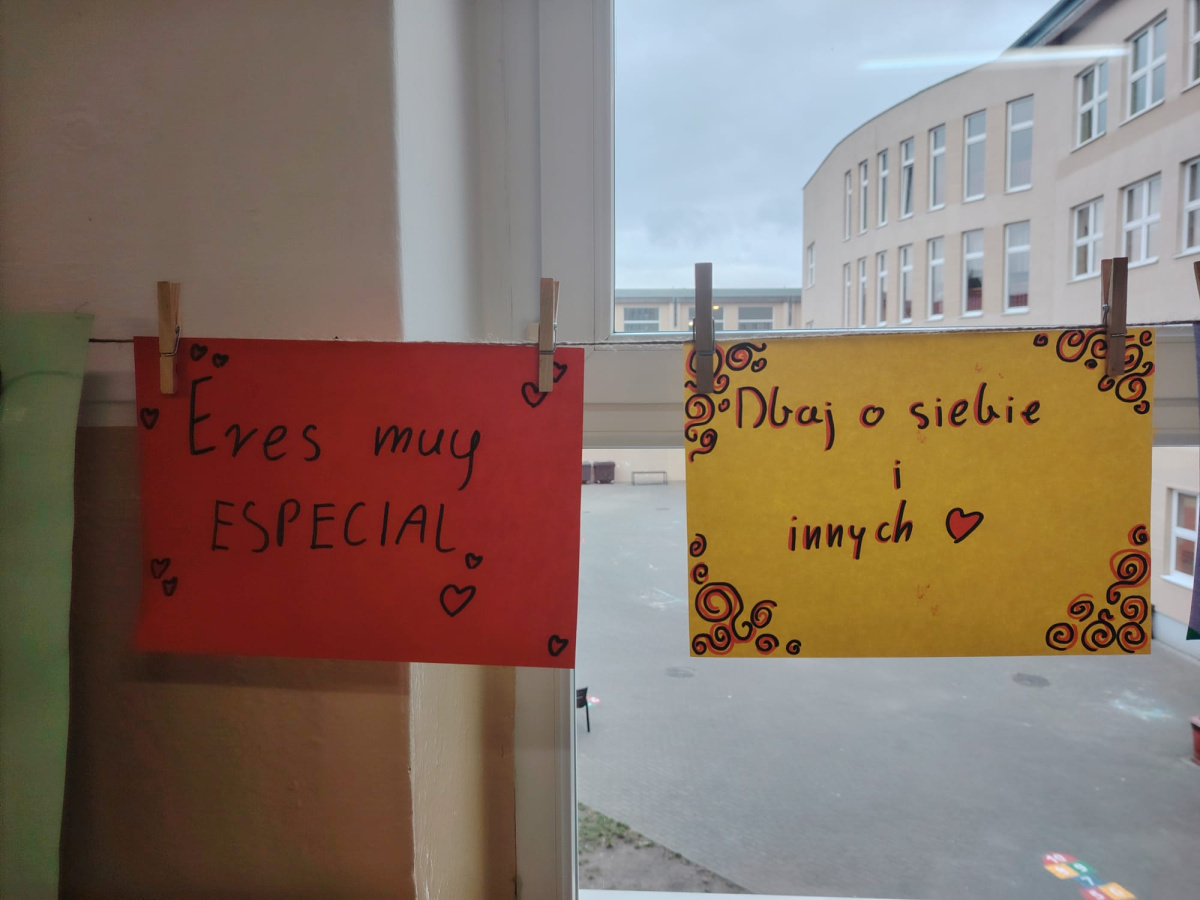 Eres muy
ESPECIAL
Dbaj o siebie
i
innych